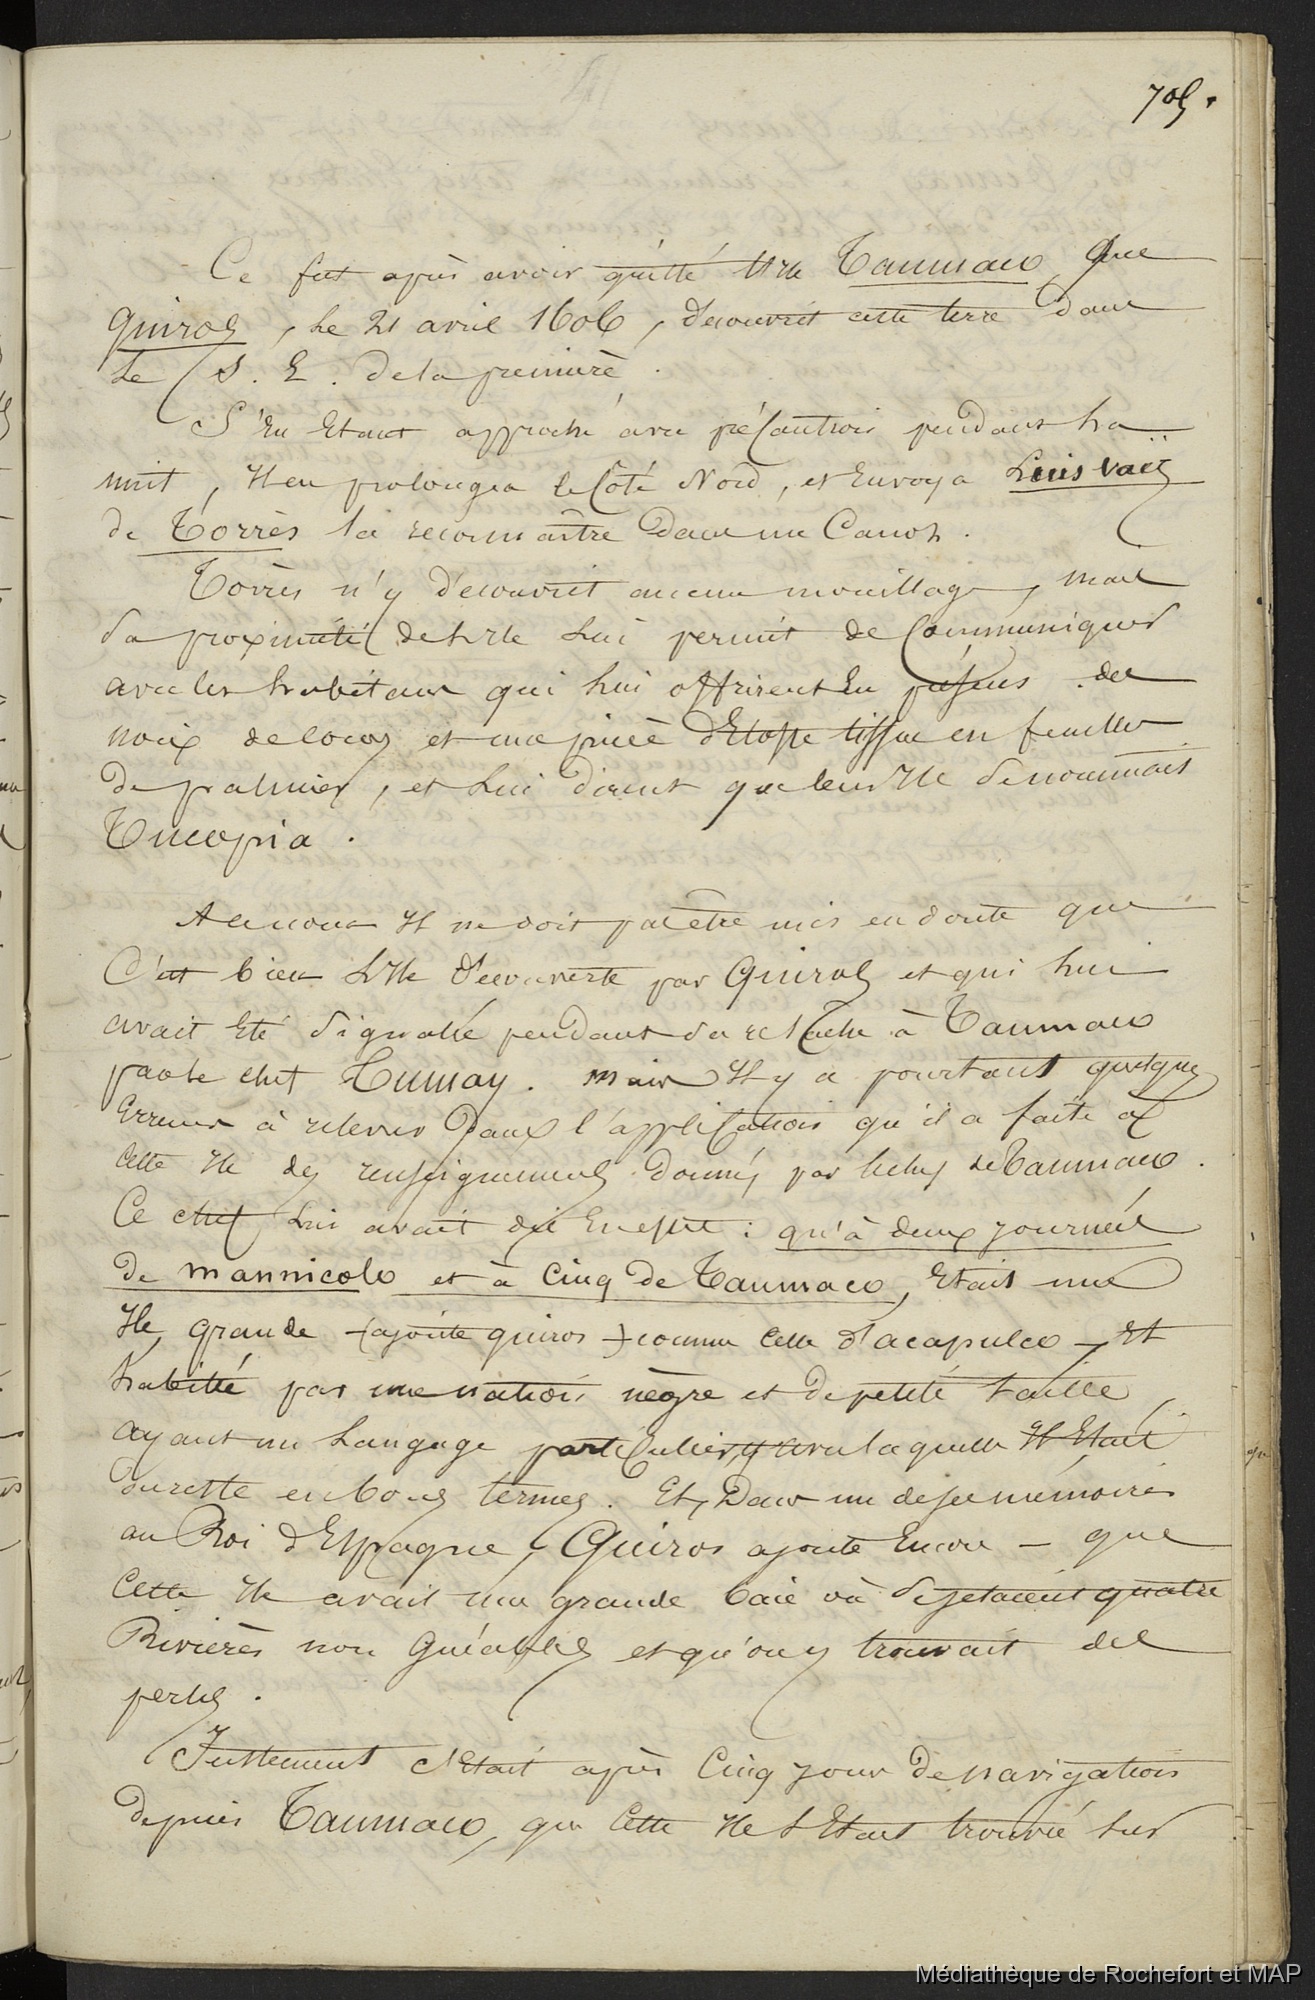 705.
Ce fut après avoir quitté l'Ile Taumaco, que
Quiros, le 21 avril 1606, découvrit cette terre dans
le S. E. de la première.
S'en étant approché avec précaution pendant la
nuit, Il en prolongea le Côté Nord, et Envoya Luis Vaëz
de Torrès la reconnaître dans un Canot.
Torrès n'y découvrit aucun mouillage, mais
sa proximité de l'Ile lui permit de Communiquer
avec les habitans qui lui offrirent En présens des
noix de Cocos et une pièce d'Etoffe tissue en feuilles
de palmier, et Lui dirent que leur Ile se nommait
Tucopia.
Il ne doit pas être mis en doute que
C'est bien l'Ile découverte par Quiros et qui lui
avait Eté signalée pendant sa relâche à Taumaco
par le chef Tumay. mais Il y a pourtant quelques
Erreurs à relever Dans l'application qu'il a faite à
Cette Ile des renseignemens donnés par le chef de Taumaco.
Ce chef Lui avait dit En effet : qu'à deux journées
de mannicolo et à Cinq de Taumaco, Etait une
Ile grande (ajoute quiros) comme Celle d'acapulco - Et
habitée par une nation nègre et de petite taille
ayant un Langage particulier, avec laquelle Il Etait
du reste en bons termes. Et, Dans un de ses mémoires
au Roi d'Espagne, Quiros ajoute Encore - que
Cette Ile avait une grande baie où se jetaient quatre
Rivières non Guéables et qu'on y trouvait des
perles.
Justement C'Etait après Cinq jours de navigation
depuis Taumaco, que Cette Ile s'Etait trouvée sur
Médiathèque de Rochefort et MAP